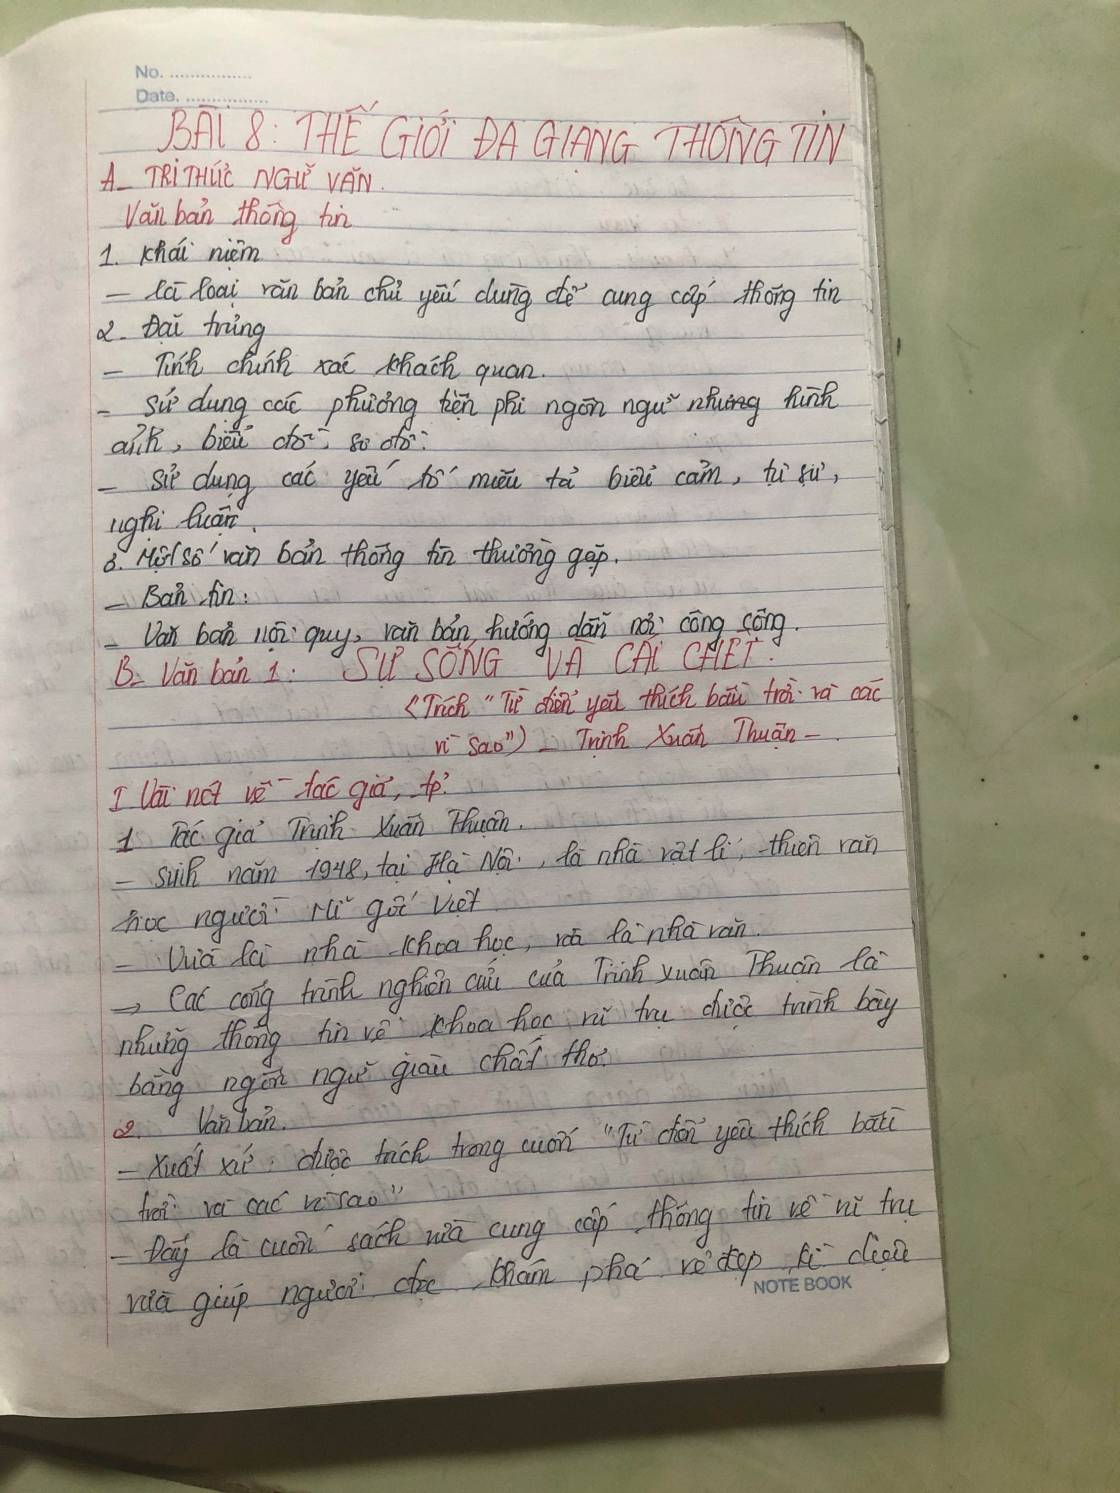 No. ................
Date. ................
BÀI 8: THẾ GIỚI ĐA GIẠNG THÔNG TIN
A- TRI THỨC NGỮ VĂN.
Văn bản thông tin
1. Khái niệm
- là loại văn bản chủ yếu dùng để cung cấp thông tin
2. Đặc trưng
- Tính chính xác khách quan.
- Sử dụng các phương tiện phi ngôn ngữ nhưng hình
ảnh, biểu đồ, sơ đồ.
- Sử dụng các yếu tố miêu tả biểu cảm, tự sự,
nghị luận.
3. Một số văn bản thông tin thường gặp.
- Bản tin.
- Văn bản nội quy, văn bản hướng dẫn nơi công cộng.
B- Văn bản 1: SỰ SỐNG VÀ CÁI CHẾT.
(Trích "Từ điển yêu thích bầu trời và các
vì sao") - Trịnh Xuân Thuận -.
I Vài nét về tác giả, tp.
1 Tác giả Trịnh Xuân Thuận.
- Sinh năm 1948, tại Hà Nội, là nhà vật lí, thiên văn
học người Mĩ gốc Việt
- Vừa là nhà khoa học, và là nhà văn.
→ Các công trình nghiên cứu của Trịnh Xuân Thuận là
những thông tin về khoa học, vũ trụ được trình bày
bằng ngôn ngữ giàu chất thơ.
2. Văn bản.
- Xuất xứ: được trích trong cuốn "Từ điển yêu thích bầu
trời và các vì sao"
- Đây là cuốn sách vừa cung cấp thông tin về vũ trụ
vừa giúp người đọc khám phá vẻ đẹp kì diệu
NOTE BOOK